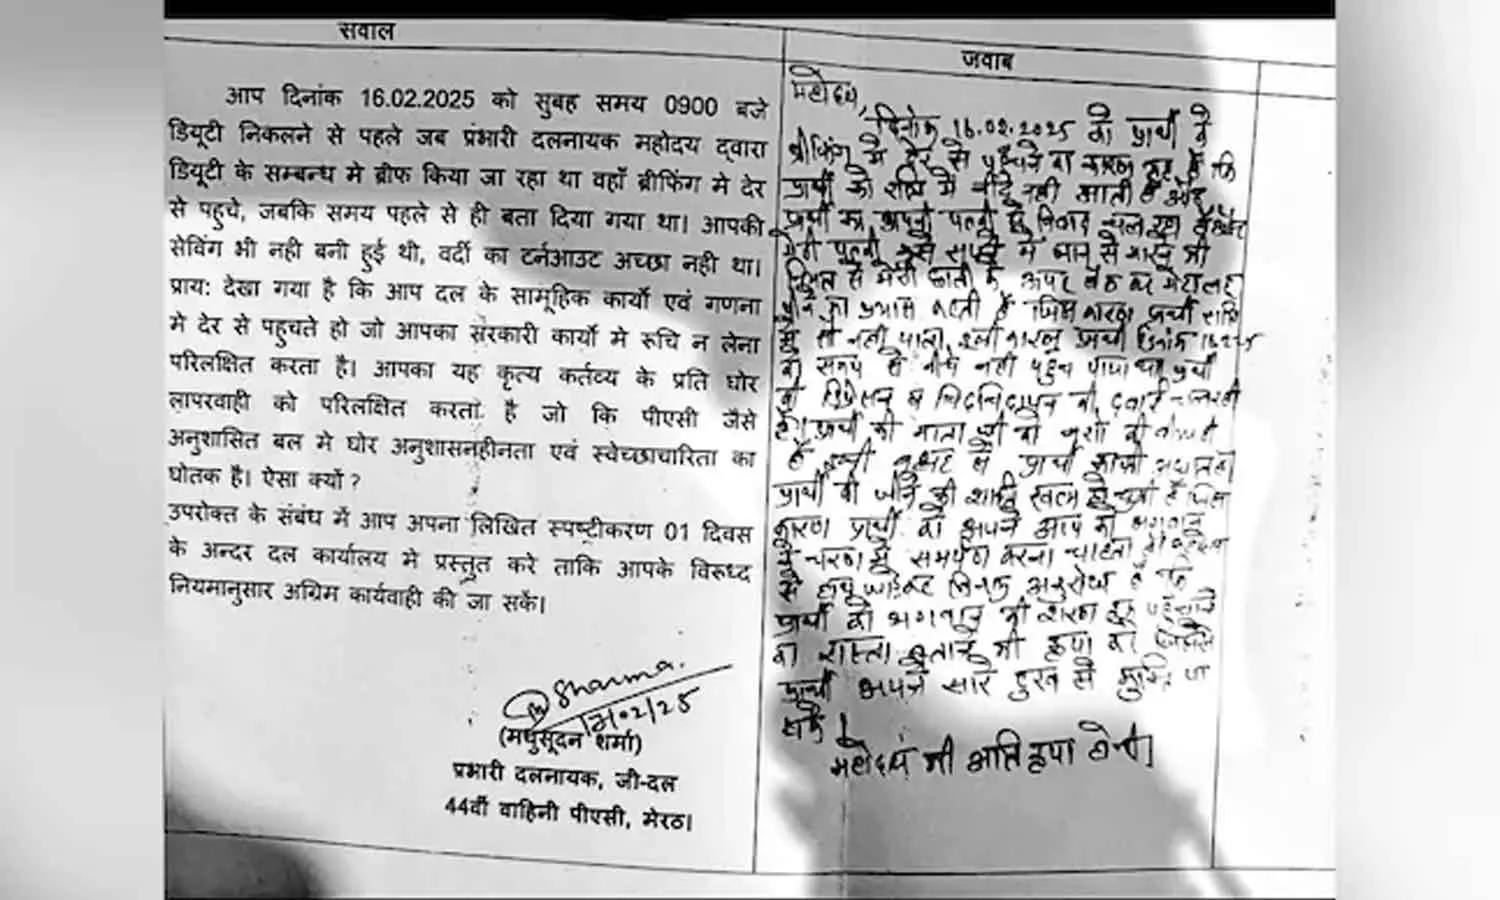 सवाल
आप दिनांक 16.02.2025 को सुबह समय 0900 बजे
डियूटी निकलने से पहले जब प्रंभारी दलनायक महोदय द्वारा
डियूटी के सम्बन्ध मे ब्रीफ किया जा रहा था वहाँ ब्रीफिंग मे देर
से पहुचे, जबकि समय पहले से ही बता दिया गया था। आपकी
सेविंग भी नही बनी हुई थी, वर्दी का टर्नआउट अच्छा नही था।
प्राय: देखा गया है कि आप दल के सामूहिक कार्यो एवं गणना
मे देर से पहुचते हो जो आपका सरकारी कार्यो मे रूचि न लेना
परिलक्षित करता है। आपका यह कृत्य कर्तव्य के प्रति घोर
लापरवाही को परिलक्षित करता है जो कि पीएसी जैसे
अनुशासित बल मे घोर अनुशासनहीनता एवं स्वेच्छाचारिता का
धोतक है। ऐसा क्यों ?
उपरोक्त के संबंध में आप अपना लिखित स्पष्टीकरण 01 दिवस
के अन्दर दल कार्यालय मे प्रस्तुत करे ताकि आपके विरूध्द
नियमानुसार अग्रिम कार्यवाही की जा सकें।
Sharma
17.02/25
(मधुसूदन शर्मा)
प्रभारी दलनायक, जी-दल
44वीं वाहिनी पीएसी, मेरठ।
जवाब
महोदय,
दिनांक 16.02.2025 को प्रार्थी के
ब्रीफिंग में देर से पहुंचने का कारण यह है कि
प्रार्थी को रात्रि में नींद नहीं आती है
प्रार्थी का अपनी पत्नी से विवाद चल रहा है
मेरी पत्नी मुझे सपने में जान से मारने की
से मेरी छाती के ऊपर बैठ कर मेरा
पीने का प्रयास करती है जिस कारण प्रार्थी रात्रि
में सो नहीं पाता, इसी कारण प्रार्थी दिनांक 16.2.25
को समय से नहीं पहुंच पाया था, प्रार्थी
को डिप्रेशन व चिडचिडापन की दवाई चल रही
है। प्रार्थी की माता जी को नसो की
है इसी वजह से प्रार्थी काफी
प्रार्थी की जीने की स्वत्म हो चुकी है जिस
कारण प्रार्थी को अपने आप को भगवान
के चरण में समर्पण करना चाहता
से अनुरोध है कि
प्रार्थी को भगवान की शरण में पहुंचने
का रास्ता बताने की कृपा करें जिससे
प्रार्थी अपने सारे दुख से मुक्ति पा
सके।
महोदय की अति कृपा होगी।